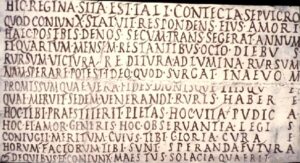 HIC REGINA SITA EST TALI CONTECTA SEPVLCR
QVOD CONIVNX STATVIT RESPONDENS EIVS AMORI
HAEC POST BIS DENOS SECVM TRANSEGERAT ANNV
ET QVARTVM MENSEM RESTANTIBVS OCTO DIEBV
RVRSVM VICTVRA REDITVRA AD LVMINA RVRSVM
NAM SPERARE POTEST IDEO QVOD SVRGAT IN AEVOM
PROMISSVM QVAE VERA FIDES DIGNISQVE PIISQVE
QVAE MERVIT SEDEM VENERANDI RVRIS HABER
HOC TIBI PRAESTITERIT PIETAS HOC VITA PVDICA
HOC ET AMOR GENERIS HOC OBSERVANTIA LEGIS
CONIVGII MERITVM CVIVS TIBI GLORIA CVRAE
HORVM FACTORVM TIBI SVNT SPERANDA FVTVRA
DE QVIBVS ET CONIVNX MAESTVS SOLACIA QVAERIT